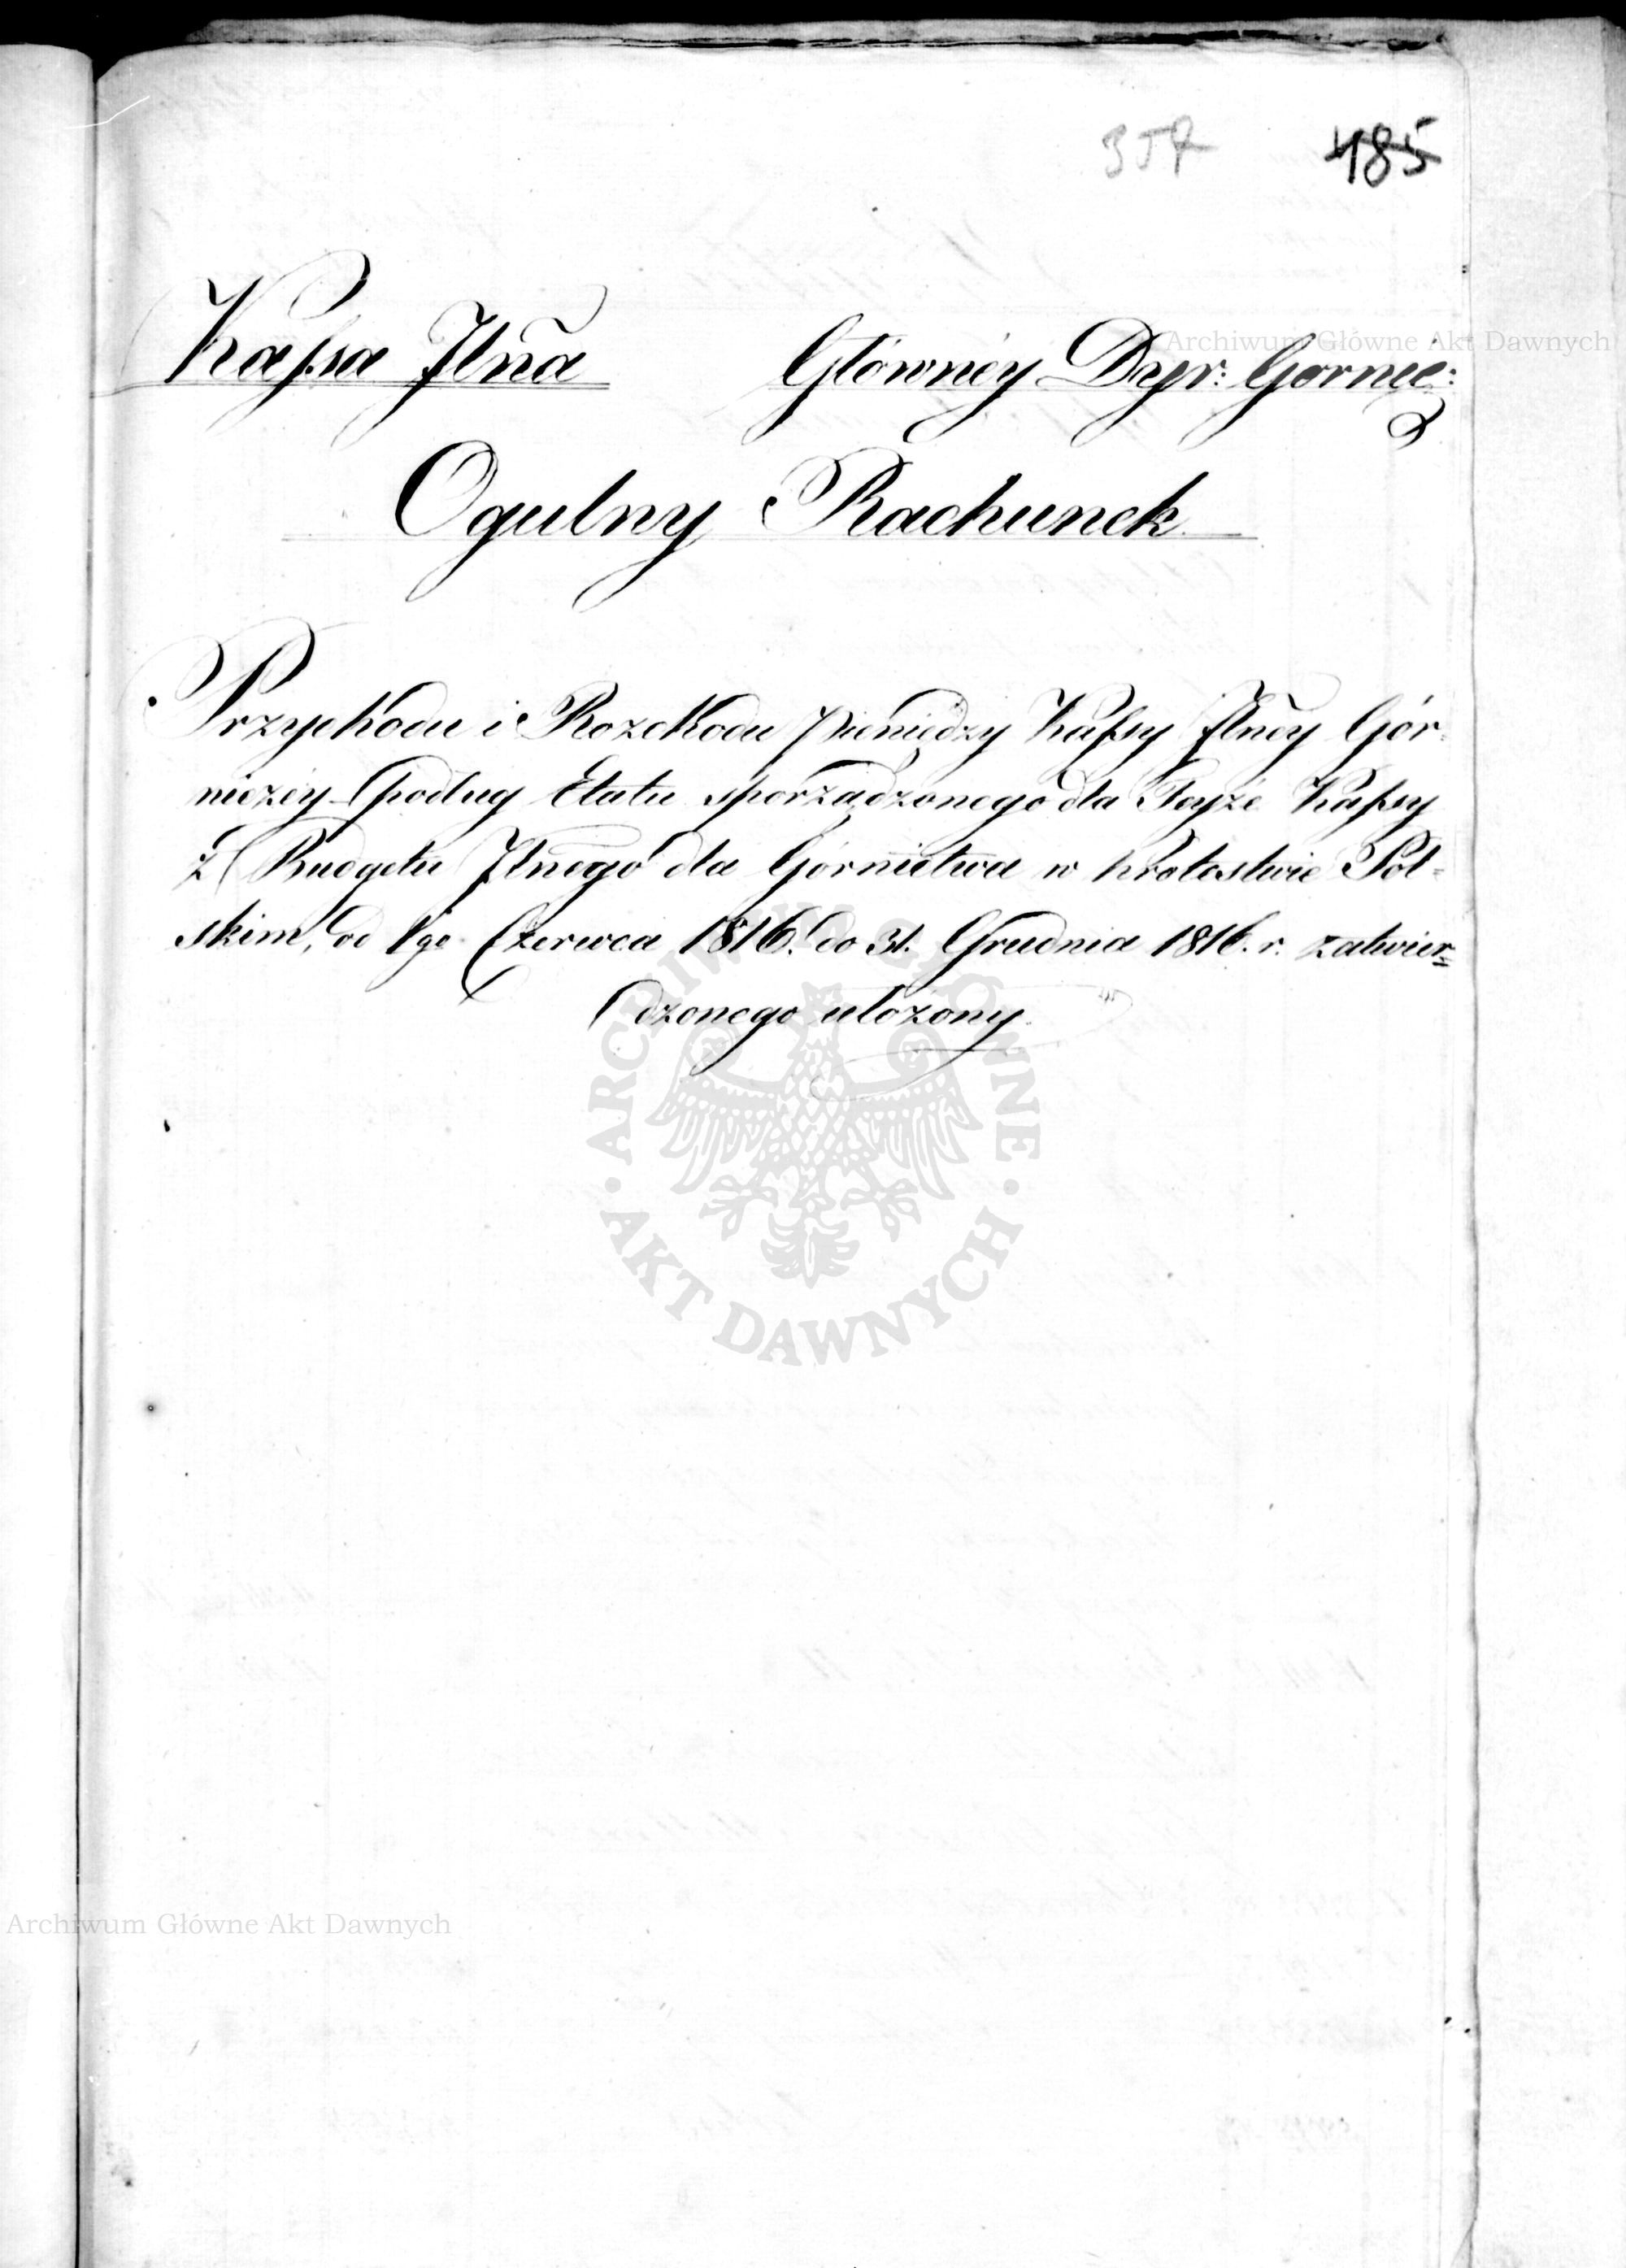 357 485
Kaſsa Jlna Główney Dyr: Gornic:
Ogulny Rachunek
Przychodu i Rozchodu Pieniędzy Kaſsy Jlney Gór-
niczéy podług Etatu sporządzonego dla Teyże Kaſsy
z Budgetu Jlnego dla Górnictwa w Krolestwie Pol-
skim, od 1go Czerwca 1816. do 31. Grudnia 1816. r. zatwier-
dzonego ułożony.
Archiwum Główne Akt Dawnych
ARCHIWUM GŁÓWNE · AKT DAWNYCH ·
Archiwum Główne Akt Dawnych